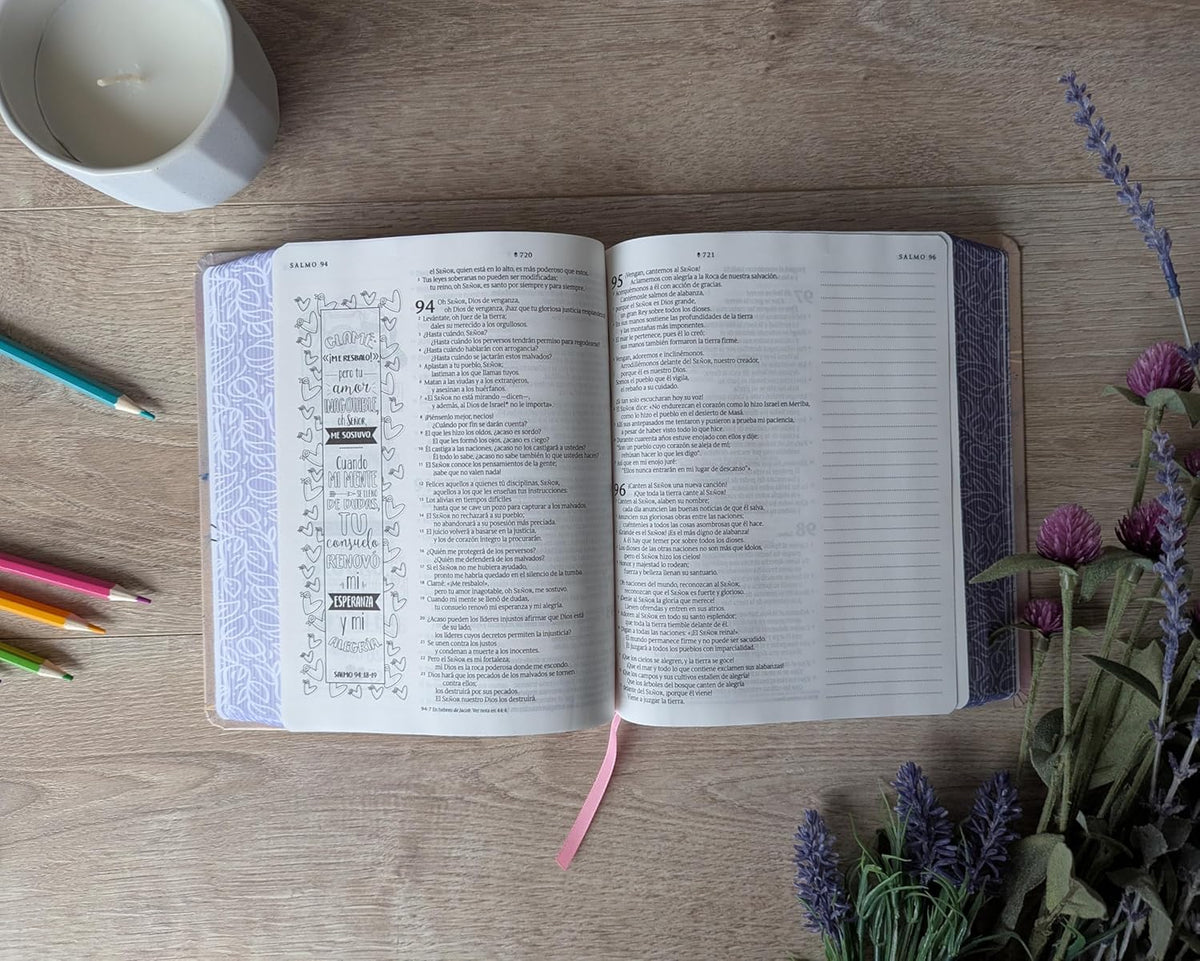 SALMO 94
720
CLAMÉ:
«¡ME RESBALO!»,
pero tu
amor
INAGOTABLE,
oh SEÑOR,
ME SOSTUVO.
Cuando
MI MENTE
SE LLENÓ
DE DUDAS,
TU
consuelo
RENOVÓ
mi
ESPERANZA
y mi
ALEGRÍA.
SALMO 94:18-19
el SEÑOR, quien está en lo alto, es más poderoso que estos.
5 Tus leyes soberanas no pueden ser modificadas;
tu reino, oh SEÑOR, es santo por siempre y para siempre.
94 Oh SEÑOR, Dios de venganza,
oh Dios de venganza, ¡haz que tu gloriosa justicia resplandezca
2 Levántate, oh juez de la tierra;
dales su merecido a los orgullosos.
3 ¿Hasta cuándo, SEÑOR?
¿Hasta cuándo los perversos tendrán permiso para regodearse?
4 ¿Hasta cuándo hablarán con arrogancia?
¿Hasta cuándo se jactarán estos malvados?
5 Aplastan a tu pueblo, SEÑOR;
lastiman a los que llamas tuyos.
6 Matan a las viudas y a los extranjeros,
y asesinan a los huérfanos.
7 «El SEÑOR no está mirando —dicen—,
y además, al Dios de Israel* no le importa».
8 ¡Piénsenlo mejor, necios!
¿Cuándo por fin se darán cuenta?
9 El que les hizo los oídos, ¿acaso es sordo?
El que les formó los ojos, ¿acaso es ciego?
10 Él castiga a las naciones, ¿acaso no los castigará a ustedes?
Él todo lo sabe, ¿acaso no sabe también lo que ustedes hacen?
11 El SEÑOR conoce los pensamientos de la gente;
¡sabe que no valen nada!
12 Felices aquellos a quienes tú disciplinas, SEÑOR,
aquellos a los que les enseñas tus instrucciones.
13 Los alivias en tiempos difíciles
hasta que se cave un pozo para capturar a los malvados.
14 El SEÑOR no rechazará a su pueblo;
no abandonará a su posesión más preciada.
15 El juicio volverá a basarse en la justicia,
y los de corazón íntegro la procurarán.
16 ¿Quién me protegerá de los perversos?
¿Quién me defenderá de los malvados?
17 Si el SEÑOR no me hubiera ayudado,
pronto me habría quedado en el silencio de la tumba.
18 Clamé: «¡Me resbalo!»,
pero tu amor inagotable, oh SEÑOR, me sostuvo.
19 Cuando mi mente se llenó de dudas,
tu consuelo renovó mi esperanza y mi alegría.
20 ¿Acaso pueden los líderes injustos afirmar que Dios está
de su lado,
los líderes cuyos decretos permiten la injusticia?
21 Se unen contra los justos
y condenan a muerte a los inocentes.
22 Pero el SEÑOR es mi fortaleza;
mi Dios es la roca poderosa donde me escondo.
23 Dios hará que los pecados de los malvados se tornen
contra ellos;
los destruirá por sus pecados.
El SEÑOR nuestro Dios los destruirá.
94:7 En hebreo de Jacob. Ver nota en 44:4.
721
SALMO 96
95 ¡Vengan, cantemos al SEÑOR!
Aclamemos con alegría a la Roca de nuestra salvación.
Acerquémonos a él con acción de gracias.
Cantémosle salmos de alabanza,
porque el SEÑOR es Dios grande,
un gran Rey sobre todos los dioses.
En sus manos sostiene las profundidades de la tierra
y las montañas más imponentes.
El mar le pertenece, pues él lo creó;
sus manos también formaron la tierra firme.
Vengan, adoremos e inclinémonos.
Arrodillémonos delante del SEÑOR, nuestro creador,
porque él es nuestro Dios.
Somos el pueblo que él vigila,
el rebaño a su cuidado.
¡Si tan solo escucharan hoy su voz!
El SEÑOR dice: «No endurezcan el corazón como lo hizo Israel en Meriba,
como lo hizo el pueblo en el desierto de Masá.
Allí sus antepasados me tentaron y pusieron a prueba mi paciencia,
a pesar de haber visto todo lo que hice.
Durante cuarenta años estuve enojado con ellos y dije:
"Son un pueblo cuyo corazón se aleja de mí;
rehúsan hacer lo que les digo".
Así que en mi enojo juré:
"Ellos nunca entrarán en mi lugar de descanso"».
96 ¡Canten al SEÑOR una nueva canción!
¡Que toda la tierra cante al SEÑOR!
Canten al SEÑOR, alaben su nombre;
cada día anuncien las buenas noticias de que él salva.
Anuncien sus gloriosas obras entre las naciones;
cuéntenles a todos las cosas asombrosas que él hace.
¡Grande es el SEÑOR! ¡Es el más digno de alabanza!
A él hay que temer por sobre todos los dioses.
Los dioses de las otras naciones no son más que ídolos,
¡pero el SEÑOR hizo los cielos!
Honor y majestad lo rodean;
fuerza y belleza llenan su santuario.
Oh naciones del mundo, reconozcan al SEÑOR;
reconozcan que el SEÑOR es fuerte y glorioso.
¡Denle al SEÑOR la gloria que merece!
Lleven ofrendas y entren en sus atrios.
Adoren al SEÑOR en todo su santo esplendor;
que toda la tierra tiemble delante de él.
Digan a todas las naciones: «¡El SEÑOR reina!».
El mundo permanece firme y no puede ser sacudido.
Él juzgará a todos los pueblos con imparcialidad.
¡Que los cielos se alegren, y la tierra se goce!
¡Que el mar y todo lo que contiene exclamen sus alabanzas!
¡Que los campos y sus cultivos estallen de alegría!
Que los árboles del bosque canten de alegría
delante del SEÑOR, ¡porque él viene!
Viene a juzgar la tierra.